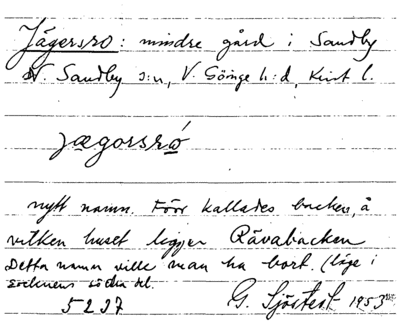 Jägersro: mindre gård i Sandby
N. Sandby s:n, V. Göinge h:d, Krist l.
jægorsrǿ
nytt namn. Förr kallades backen, å
vilken huset ligger Rävabacken
Detta namn ville man ha bort. (läge i
socknens södra del.
5237
G. Sjöstedt 1953